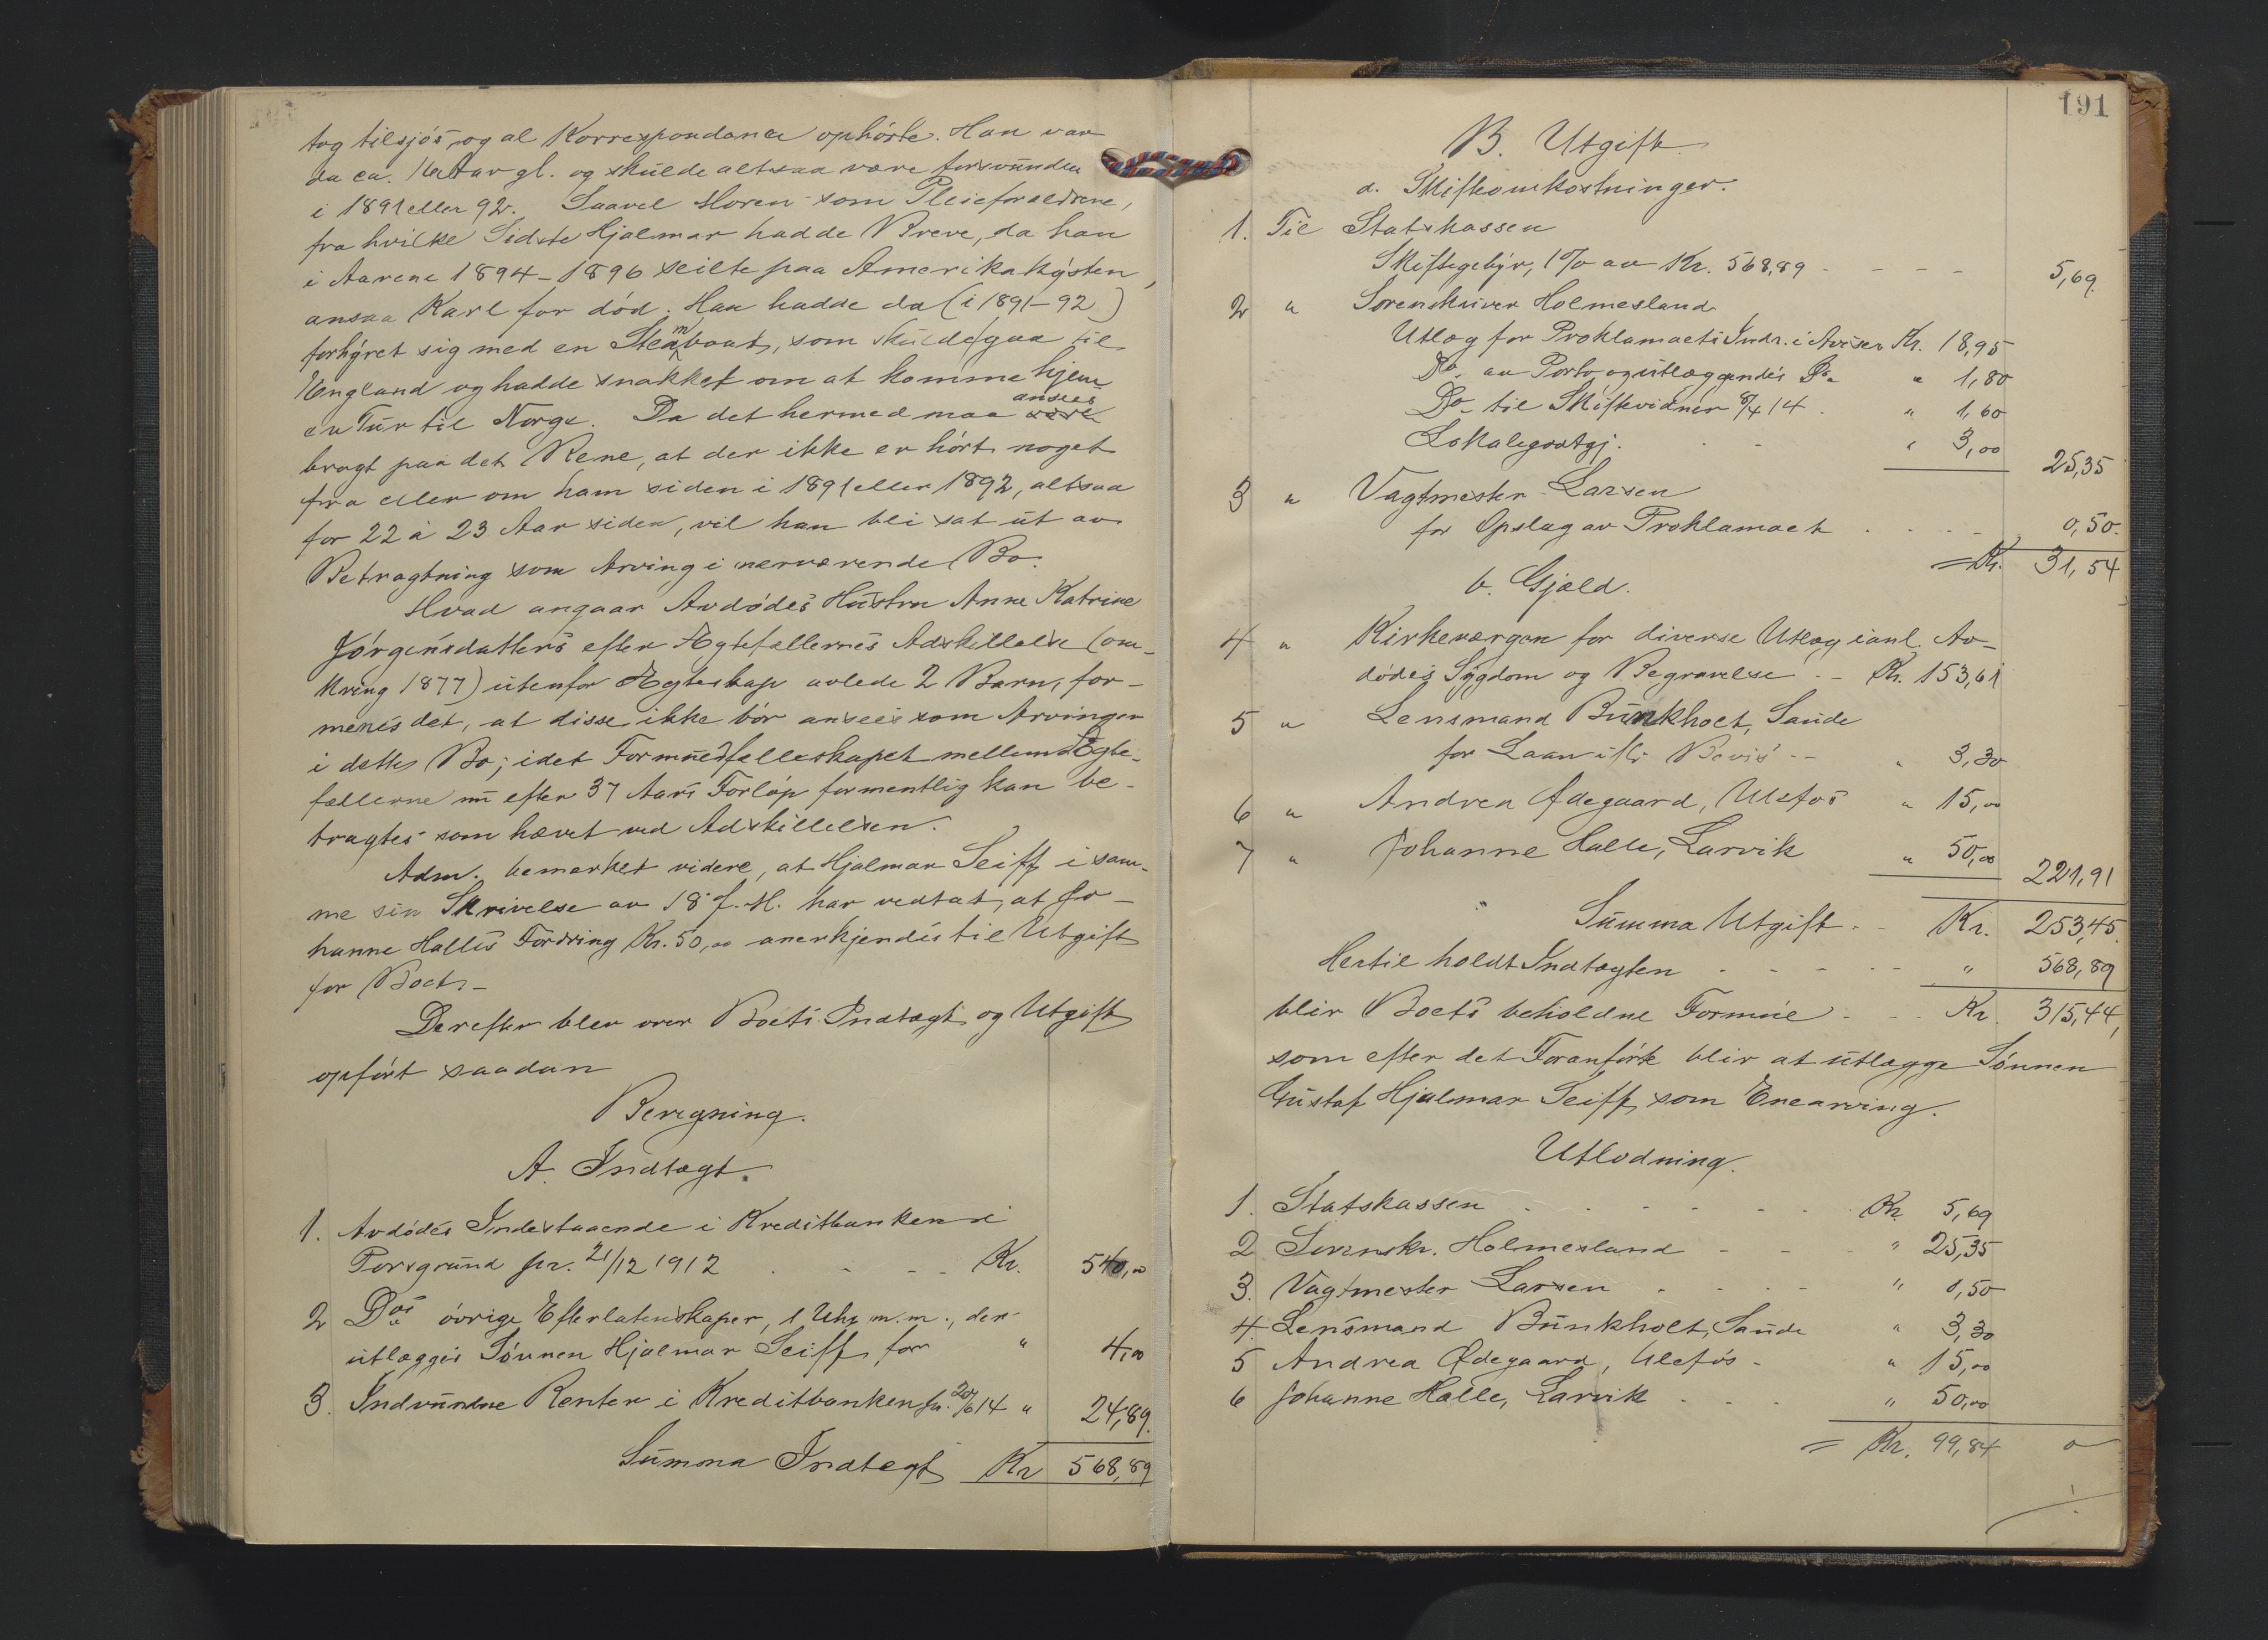 tog tilsjøs og al Korrespondance ophørte. Han var
da ca. Aar gl. og skulde altsaa være forsvunden
i 1891 eller 92. Saavel Moren som Pleieforældrene,
fra hvilke Sidste Hjalmar hadde Breve, da han
i Aarene 1894-1896 seilte paa Amerikakysten,
ansaa Karl for død. Han hadde da (i 1891-92)
forhyret sig med en Steamboat, som skulde gaa til
England og hadde snakket om at komme hjem
en Tur til Norge. Da det hermed maa ansees
bragt paa det Rene, at der ikke er hørt noget
fra eller om ham siden i 1891 eller 1892, altsaa
for 22 à 23 Aar siden, vil han bli sat ut av
Betragtning som Arving i nærværende Bo.
Hvad angaar Avdødes Hustru Anne Katrine
Jørgensdatters efter Ægtefællernes Adskillelse (om-
kring 1877) utenfor Ægteskap avlede 2 Barn, for-
menes det, at disse ikke bør ansees som Arvinger
i dette Bo, idet Formuesfælleskapet mellem Ægte-
fællerne nu efter 37 Aars Forløp formentlig kan be-
tragtes som hævet ved Adskillelsen.
Adm. bemerket videre, at Hjalmar Seiff i sam-
me sin Skrivelse av 18 f. M. har vedtat, at Jo-
hanne Halles Fordring Kr. 50,00 anerkjendes til Utgift
for Boet.-
Derefter blev over Boets Indtægt og Utgift
opført saadan
Beregning.
A. Indtægt.
1. Avdødes Indestaaende i Kreditbanken i
Porsgrund pr. 21/12 1912 Kr. 540,00
2 Dos øvrige Efterlatenskaper, 1 Uhr m.m., der
utlægges Sønnen Hjalmar Seiff for " 4,00
3. Indvundne Renter i Kreditbanken pr. 20/6 14 " 24,89.
Summa Indtægt Kr 568,89
191
B. Utgift.
a. Skifteomkostninger.
1. Til Statskassen
Skiftegebyr, 1% av Kr. 568,89 - - - - 5,69
2 " Sorenskriver Holmesland
Utlæg for Proklamaets Indr. i Aviser Kr. 18,95
Do. av Porto utlæggendes Do. " 1,80
Do- til Skiftevidner 8/4 14. " 1,60
Lokalegodtgj. " 3,00 25,35
3 " Vagtmester Larsen
for Opslag av Proklamaet 0,50.
= Kr. 31,54
b. Gjæld.
4 " Kirkevergen for diverse Utlæg i anl. Av-
dødes Sygdom og Begravelse - - Kr. 153,61
5 " Lensmand Bunkholt, Saude
for Laan ifl. Bevis - - " 3,30
6 " Andrea Ødegaard, Ulefos " 15,00
7 " Johanne Halle, Larvik " 50,00 221,91
Summa Utgift - - Kr. 253,45.
Hertil holdt Indtægten - - - - - " 568,89
blir Boets beholdne Formue - - - Kr. 315,44,
som efter det Foranførte blir at utlægge Sønnen
Gustaf Hjalmar Seiff som Enearving.
Utlodning.
1. Statskassen Kr. 5,69
2 Sorenskr. Holmesland - - " 25,35
3. Vagtmester Larsen - - - - " 0,50
4. Lensmand Bunkholt, Saude " 3,30
5 Andrea Ødegaard, Ulefos - " 15,00
6 Johanne Halle, Larvik - - - " 50,00
= Kr. 99,84